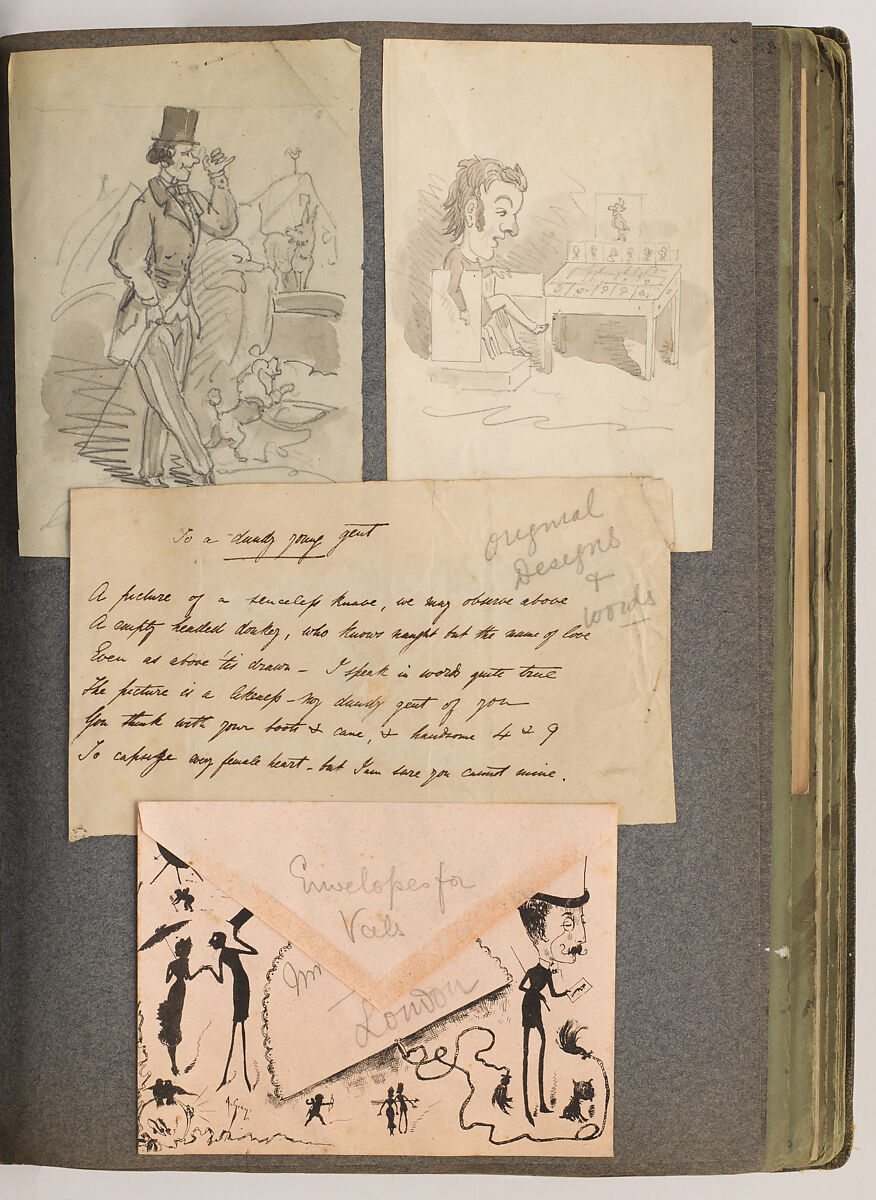 To a dandy young gent
A picture of a senceless knave, we may observe above
A empty headed donkey, who knows naught but the name of love
Even as above 'tis drawn – I speak in words quite true
The picture is a likeness – my dandy gent of you
You think with your boots & cane, & handsome 4 & 9
To capsize every female heart – but I am sure you cannot mine.
Original
Designs
+
Words
Envelopes for
Vals
London